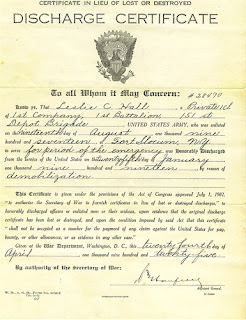 CERTIFICATE IN LIEU OF LOST OR DESTROYED
DISCHARGE CERTIFICATE
To all Whom it May Concern:
Know ye, That Leslie C Hall, Private 1cl
of 1st Company 1st Battalion 151 st
Depot Brigade UNITED STATES ARMY, who was enlisted
on nineteenth day of August one thousand nine
hundred seventeen at Fort Slocum NY
for period of the emergency was Honorably Discharged
from the service of the United States on twenty fifth day of January
one thousand nine hundred nineteen by reason of
demobilization.
This Certificate is given under the provisions of the Act of Congress approved July 1, 1902,
"to authorize the Secretary of War to furnish certificates in lieu of lost or destroyed discharges," to
honorably discharged officers or enlisted men or their widows, upon evidence that the original discharge
certificate has been lost or destroyed, and upon the condition imposed by said Act that this certificate
"shall not be accepted as a voucher for the payment of any claim against the United States for pay,
bounty, or other allowance, or as evidence in any other case."
Given at the War Department, Washington, D. C., this twenty fourth day of
April, one thousand nine hundred and twenty-five
By authority of the Secretary of War:
Adjutant General.